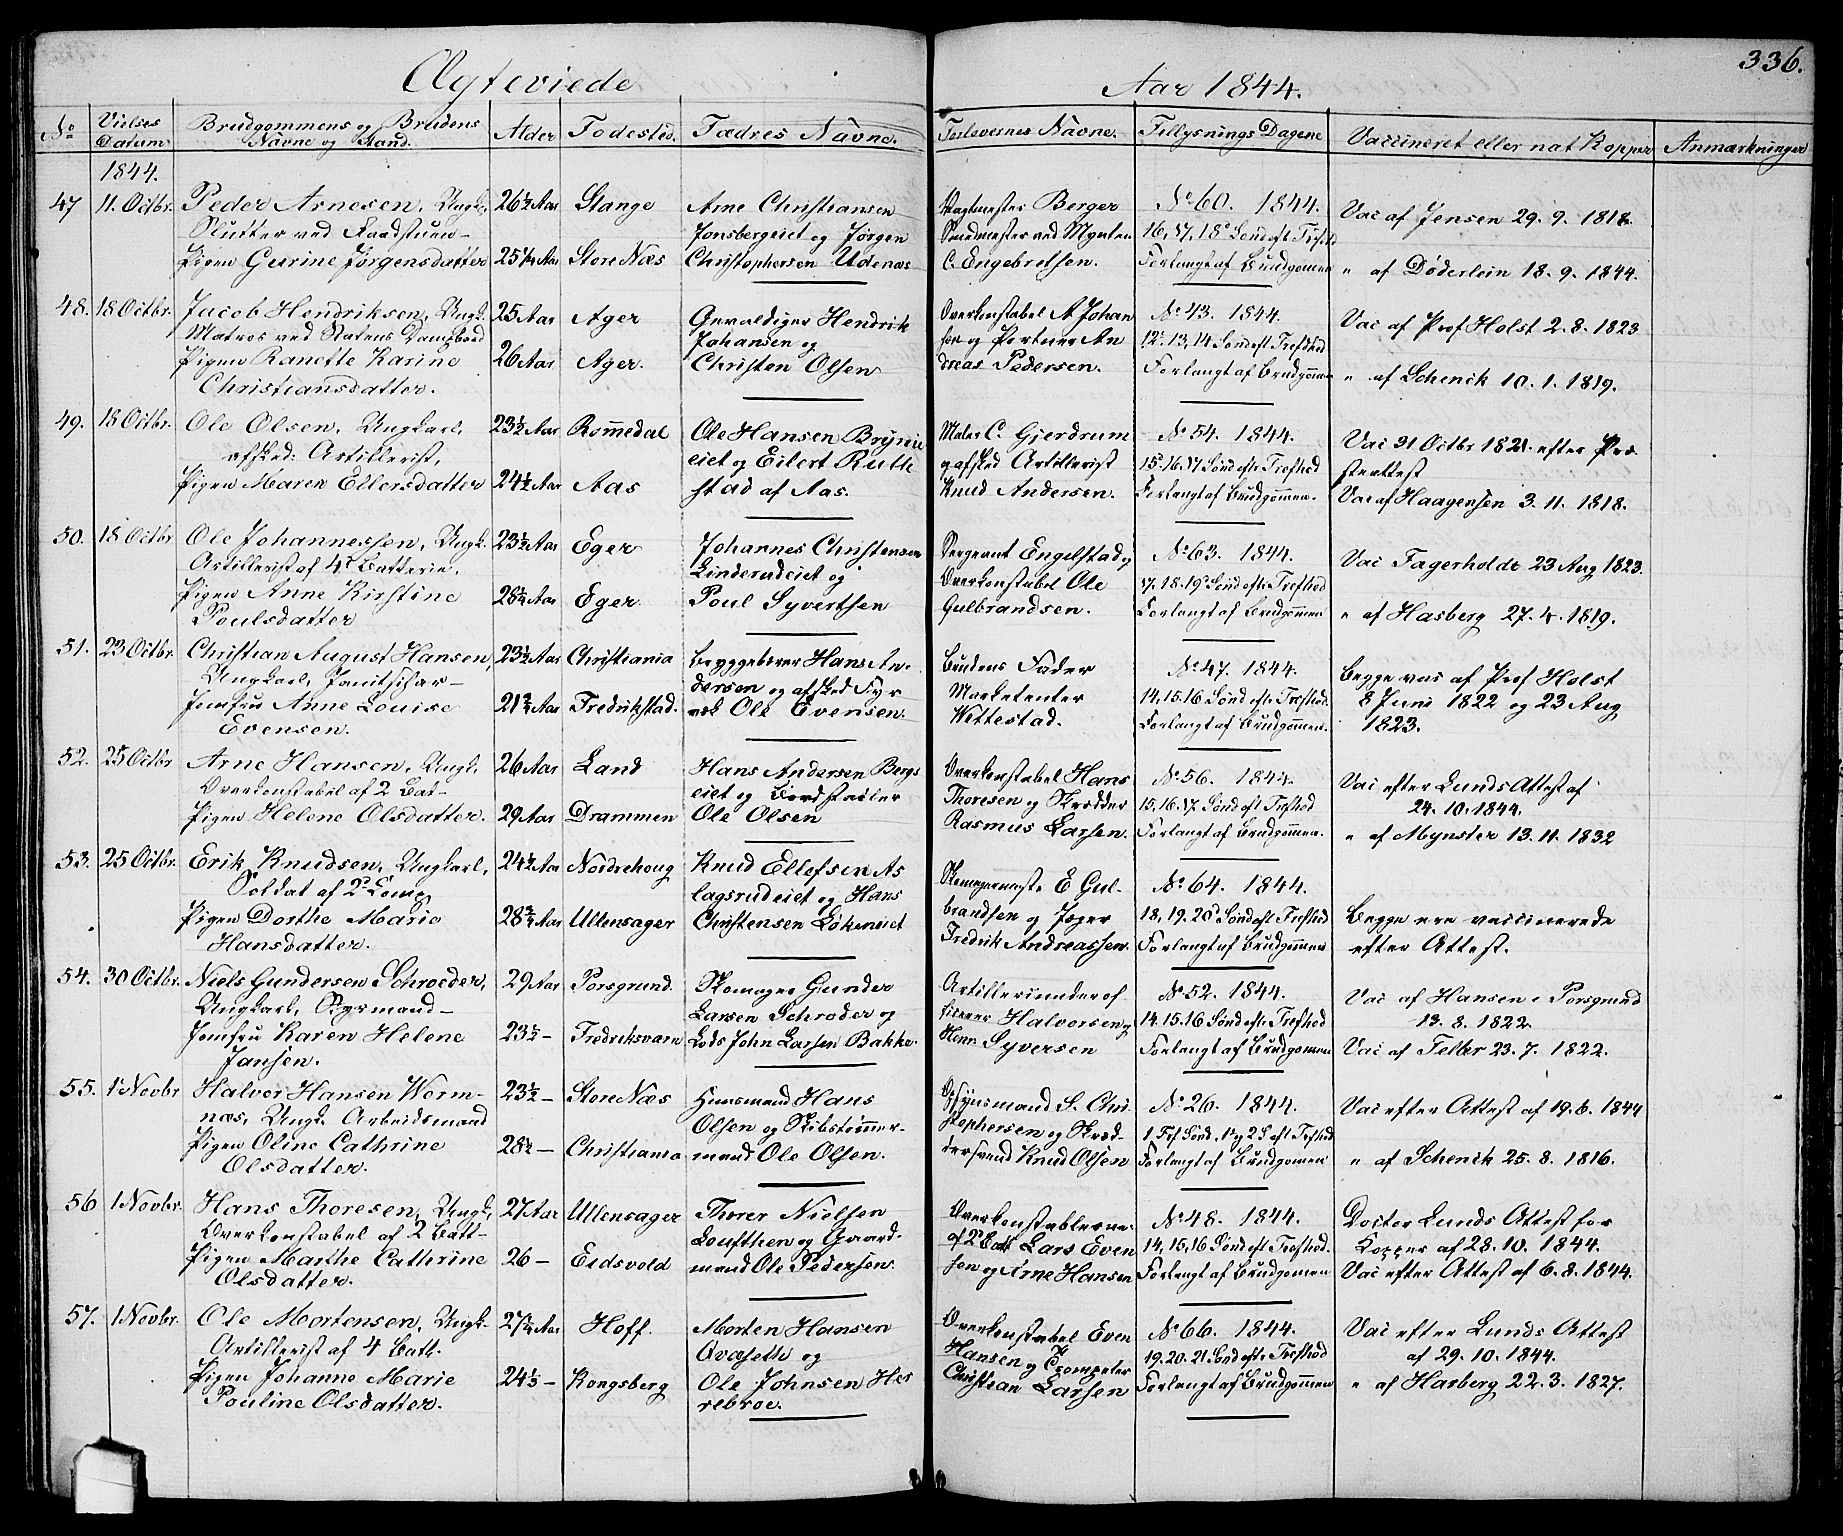 Ægteviede
Aar 1844.
336.
No Vielses Datum Brudgommens og Brudens Navne og Stand. Alder Fødested. Fædres Navne. Forlovernes Navne. Tillysnings Dagene Vaccineret eller nat Kopper Anmærkninger
1844.
47 11. Octbr. Peder Arnesen, Ungk. 26½ Aar Stange Arne Christiansen Berger No 60. 1844. Vac af Jensen 29. 9. 1818.
Slutter ved Raadstuen Jonsbergeiet og Jørgen Smedmester ved Mynten 16, 17, 18de Søndeft Trefhd
Pigen Gurine Jørgensdatter 25¼ Aar Store Næs Christophersen Udenæs C. Engebretsen. Forlangt af Brudgommen " af Døderlein 18. 9. 1844.
48. 18 Octbr. Jacob Hendriksen, Ungk. 25 Aar Ager Gevaldiger Hendrik Overkonstabel A Johan No 43. 1844. Vac af Prof Holst 2. 8. 1823
Matros ved Statens Dampbaad Johansen og sen og Portner An 12. 13, 14 Søndeft Trefhed
Pigen Ranette Karine 26 Aar Ager. Christen Olsen dreas Pedersen. Forlangt af Brudgommen " af Schenck 10. 1. 1819.
Christiansdatter.
49. 18 Octbr. Ole Olsen, Ungkarl, 23½ Aar Rommedal Ole Hansen Brynie Maler C. Gjerdrum No 54. 1844. Vac 31 Octbr 1821 efter Præ
afsked: Artillerist, eiet og Eilert Ruth og afsked Artillerist 15. 16. 17 Sønd efte Trefhed stettest
Pigen Maren Ellersdatter 24½ Aar Aas stad af Aas. Knud Andersen. Forlangt af Brudgommen. Vac af Haagensen 3. 11. 1818.
50. 18 Octbr Ole Johannessen, Ungk. 23½ Aar Eger Johannes Christensen Sergeant Engelstad og No 63. 1844. Vac Fagerholdt 23 Aug 1823.
Artillerist af 4de Batterie. Linderudeiet og Overkonstabel Ole 17. 18. 19de Sønd efte Trefhed
Pigen Anne Kirstine 28¼ Aar Eger. Poul Syvertsen Gulbrandsen. Forlangt af Brudgommen " af Hasberg 27. 4. 1819.
Poulsdatter
51. 23 Octbr. Christian August Hansen, 23½ Aar Christiania Byggebever Hans An- Brudens Fader No 47. 1844. Begge vac af Prof Holst
Ungkarl, Janitshar dersen og afsked Fyr Marketenter 14, 15. 16 Sønd eft Trefhed. 8 Juni 1822 og 23 Aug
Jomfru Anne Louise 21¾ Aar Fredrikstad. Ole Evensen. Wettestad. Forlangt af Brudgommen. 1823.
Evensen.
52. 25 Octbr Arne Hansen, Ungk. 26 Aar Land Hans Andersen Bergs Overkonstabel Hans No 56. 1844. Vac efter Lunds Attest af
Overkonstabel af 2 Bat- eiet og Bordstabler Thoresen og Skrædder 15, 16. 17 Sønd eft Trefhed 24. 10. 1844.
Pigen Helene Olsdatter. 29 Aar Drammen Ole Olsen Rasmus Larsen. Forlangt af Brudgommen. " af Mynster 13. 11. 1832
53. 25 Octbr. Erik Knudsen, Ungkarl, 24½ Aar Nordrehoug Knud Ellefsen As Skomagermester E Gul- No 64. 1844.
Soldat af 2de Comp. lagsrudeiet og Hans brandsen og Jæger 18, 19. 20 Sønd eft Trefhed Begge ere vaccinerede
Pigen Dorthe Marie 28¾ Aar Ullensager Christensen Løkeneiet Fredrik Andreassen. Forlangt af Brudgommen efter Attest.
Hansdatter.
54. 30 Octbr. Niels Gundersen Schroeder, 29 Aar Porsgrund. Skomager Gunder Artilleriunderof No 52. 1844. Vac af Hansen i Porsgrund
Ungkarl, Styrmand Larsen Schroder og ficerer Halvorsen og 14. 15. 16 Sønd eft Trefhed 13. 8. 1822.
Jomfru Karen Helene 23½ - Fredriksværn Lods John Larsen Bakke. Henr. Syversen Forlangt af Brudgommen Vac af Teller 23. 7. 1822.
Jansen.
55. 1 Novbr Halvor Hansen Worm- 23½ - Store Næs Huusmand Hans Opsynsmand S. Chri No 26. 1844. Vac efter Attest af 19. 6. 1844
næs, Ungk. Arbeidsmand Olsen og Skibstømmer- stophersen og Skræd- 1 Tref Sønd. 1 og 2 S eft Trefhed
Pigen Oline Cathrine 28½ - Christiania mand Ole Olsen. dersvend Knud Olsen Forlangt af Brudgommen " af Schenck 25. 8. 1816.
Olsdatter.
56 1 Novbr. Hans Thoresen, Ungk. 27 Aar Ullensager Thorer Nielsen Overkonstablerne No 48. 1844. Doctor Lunds Attest for
Overkonstabel af 2 Batt- Loufthen og Gaard- af 2 Batt Lars Even 14, 15, 16 Sønd eft Trefhed. Kopper af 28. 10. 1844.
Pigen Marthe Cathrine 26 - Eidsvold mand Ole Pedersen. sen og Arne Hansen Forlangt af Brudgommen Vac efter Attest af 6. 8. 1844.
Olsdatter.
57. 1 Novbr. Ole Mortensen, Ungk. 27¼ Aar Hoff. Morten Hansen Overkonstabel Even No 66. 1844. Vac efter Lunds Attest
Artillerist af 4 Batt. Ovaseth og Hansen og Trompeter 19. 20. 21 Sønd efte Trefhed af 29. 10. 1844.
Pigen Johanne Marie 24½ - Kongsberg Ole Johnsen Her Christian Larsen Forlangt af Brudgommen " af Harberg 22. 3. 1827.
Pouline Olsdatter. rebroe.